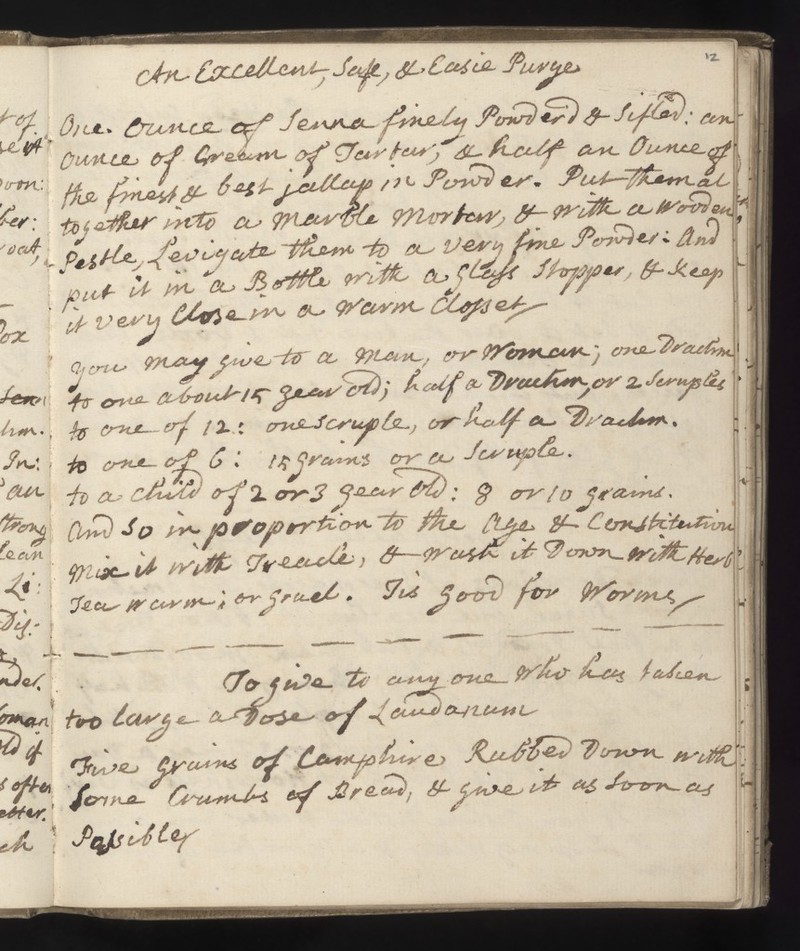 12
An Excellent, Safe, & Easie Purge
One. Ounce of Senna finely Powder'd & Sifted: an
Ounce of Cream of Tartar, & half an Ounce of
the finest & best jallap in Powder. Put them al
together into a Marble Mortar, & with a Wooden
Pestle, Levigate them to a very fine Powder: And
put it in a Bottle with a Glass Stopper, & Keep
it very Close in a Warm Closset
you may give to a Man, or Woman; one Drachm
to one about 15 year old; half a Drachm, or 2 Scruples
to one of 12: one scruple, or half a Drachm.
to one of 6: 15 grains or a Scruple.
to a child of 2 or 3 year old: 8 or 10 grains.
And so in proportion to the Age & Constitution
Mix it with Treacle, & wash it Down with Herb
Tea warm; or gruel. Tis good for Worms
To give to any one who has taken
too large a Dose of Laudanum
Five grains of Camphire Rubbed Down with
Some Crumbs of Bread, & give it as soon as
Possible